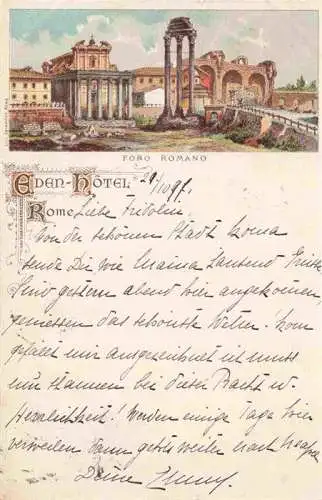 FORO ROMANO
EDEN-HÔTEL 29/10 97.
ROME, Liebe Fridolin
Von der schönen Stadt Roma
sende Dir wie Mama tausend Grüsse
Sind gestern abend hier angekommen,
geniessen das schönste Wetter. Rom
gefällt mir ausgezeichnet ich muss
nur staunen bei dieser Pracht u.
Herrlichkeit! Werden einige Tage hier
verweilen dann gehts weiter nach Neapel
Deine